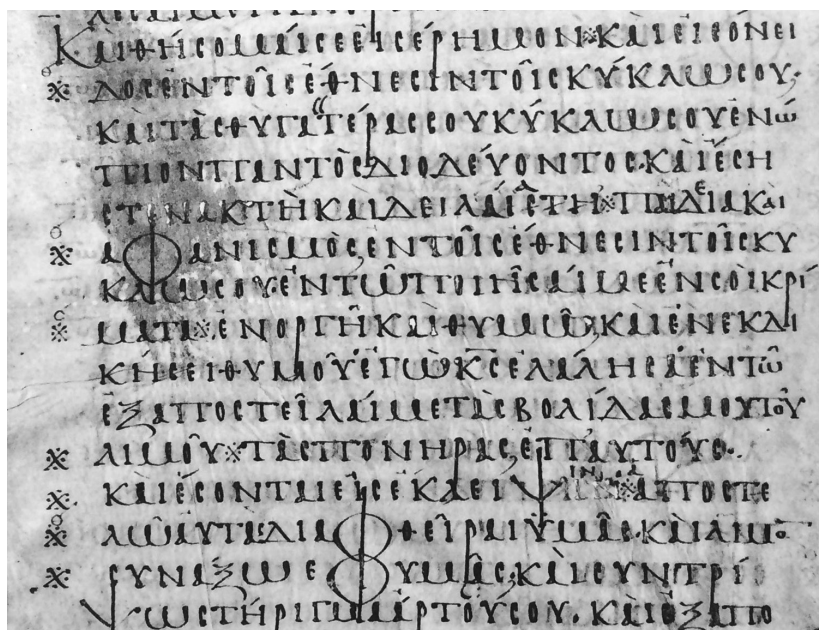 ΚΑΙΘΗϹΟΜΑΙϹΕΕΙϹΕΡΗΜΟΝ※ΚΑΙΕΙϹΟΝΕΙ
※ ΔΟϹΕΝΤΟΙϹΕΘΝΕϹΙΝΤΟΙϹΚΥΚΛΩϹΟΥ·
ΚΑΙΤΑϹΘΥΓΑΤΕΡΑϹϹΟΥΚΥΚΛΩϹΟΥΕΝΩ
ΠΙΟΝΠΑΝΤΟϹΔΙΟΔΕΥΟΝΤΟϹ·ΚΑΙΕϹΗ
ϹΤΕΝΑΚΤΗΚΑΙΔΕΙΛΑΙϹΤΗ※ΠΑΙΔΕΙΑΚΑΙ
※ ΑΦΑΝΙϹΜΟϹ,ΕΝΤΟΙϹΕΘΝΕϹΙΝΤΟΙϹΚΥ
ΚΛΩϹΟΥ·ΕΝΤΩΠΟΙΗϹΑΙΜΕΕΝϹΟΙΚΡΙ
※ ΜΑΤΑ※ΕΝΟΡΓΗΚΑΙΘΥΜΩ,ΚΑΙΕΝΕΚΔΙ
ΚΗϹΕΙΘΥΜΟΥΕΓΩΚϹΕΛΑΛΗϹΑΕΝΤΩ
ΕΞΑΠΟϹΤΕΙΛΑΙΜΕΤΑϹΒΟΛΙΔΑϹΜΟΥΤΟΥ
※ ΛΙΜΟΥ※ΤΑϹΠΟΝΗΡΑϹ,ΕΠΑΥΤΟΥϹ·
※ ΚΑΙΕϹΟΝΤΑΙΕΙϹΕΚΛΕΙΨΙΝ※ΑΠΟϹΤΕ
※ ΛΩΑΥΤΑΔΙΑΦΘΕΙΡΑΙΥΜΑϹ·ΚΑΙΛΙΜΟ
※ ϹΥΝΑΞΩΕΦΥΜΑϹ,ΚΑΙϹΥΝΤΡΙ
ΨΩϹΤΗΡΙΓΜΑΑΡΤΟΥϹΟΥ·ΚΑΙΕΞΑΠΟ